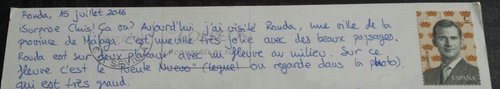 Ronda, 15 juillet 2016
¡Surprise Chris! Ça va? Aujourd'hui j'ai visité Ronda, une ville de la
province de Málaga. C'est une ville très jolie avec des beaux paysages.
Ronda est sur deux plateaux avec un fleuve au milieu. Sur ce
fleuve c'est le "Puente Nuevo" (lequel on regarde dans la photo)
qui est très grand.
ESPAÑA